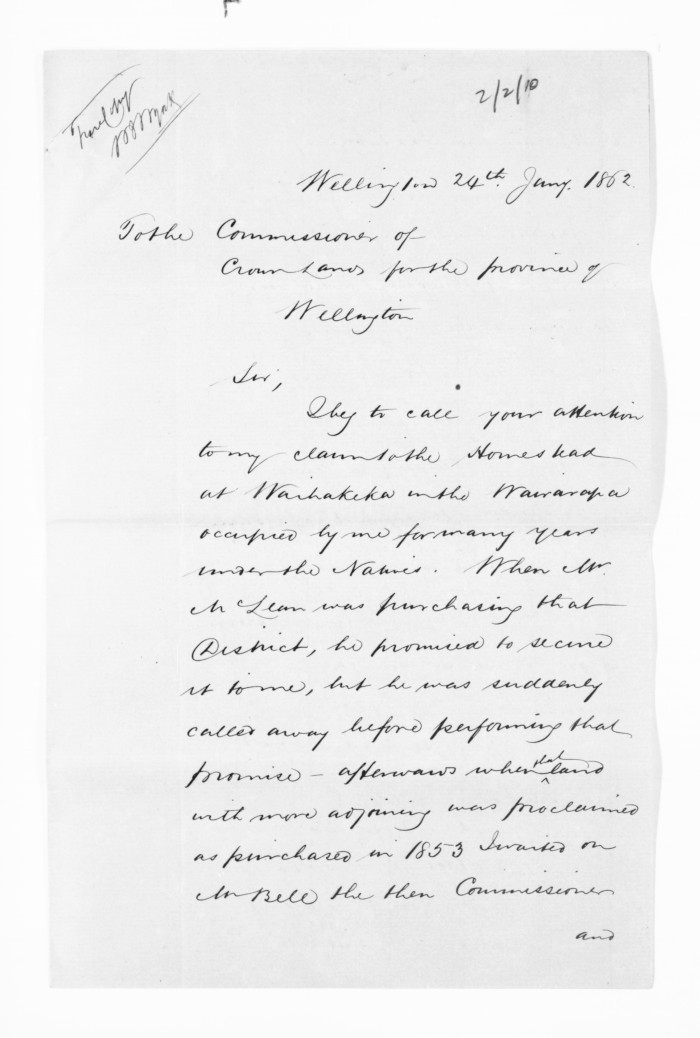 2/2/10
Wellington 24th. Jany. 1862.
To the Commissioner of
Crown Lands for the province of
Wellington
Sir,
I beg to call your attention
to my claim to the Homestead
at Waihakeka in the Wairarapa
occupied by me for many years
under the Natives. When Mr.
McLean was purchasing that
District, he promised to secure
it to me, but he was suddenly
called away before performing that
promise – afterwards when that land
with more adjoining was proclaimed
as purchased in 1853 I waited on
Mr Bell the then Commissioner
and